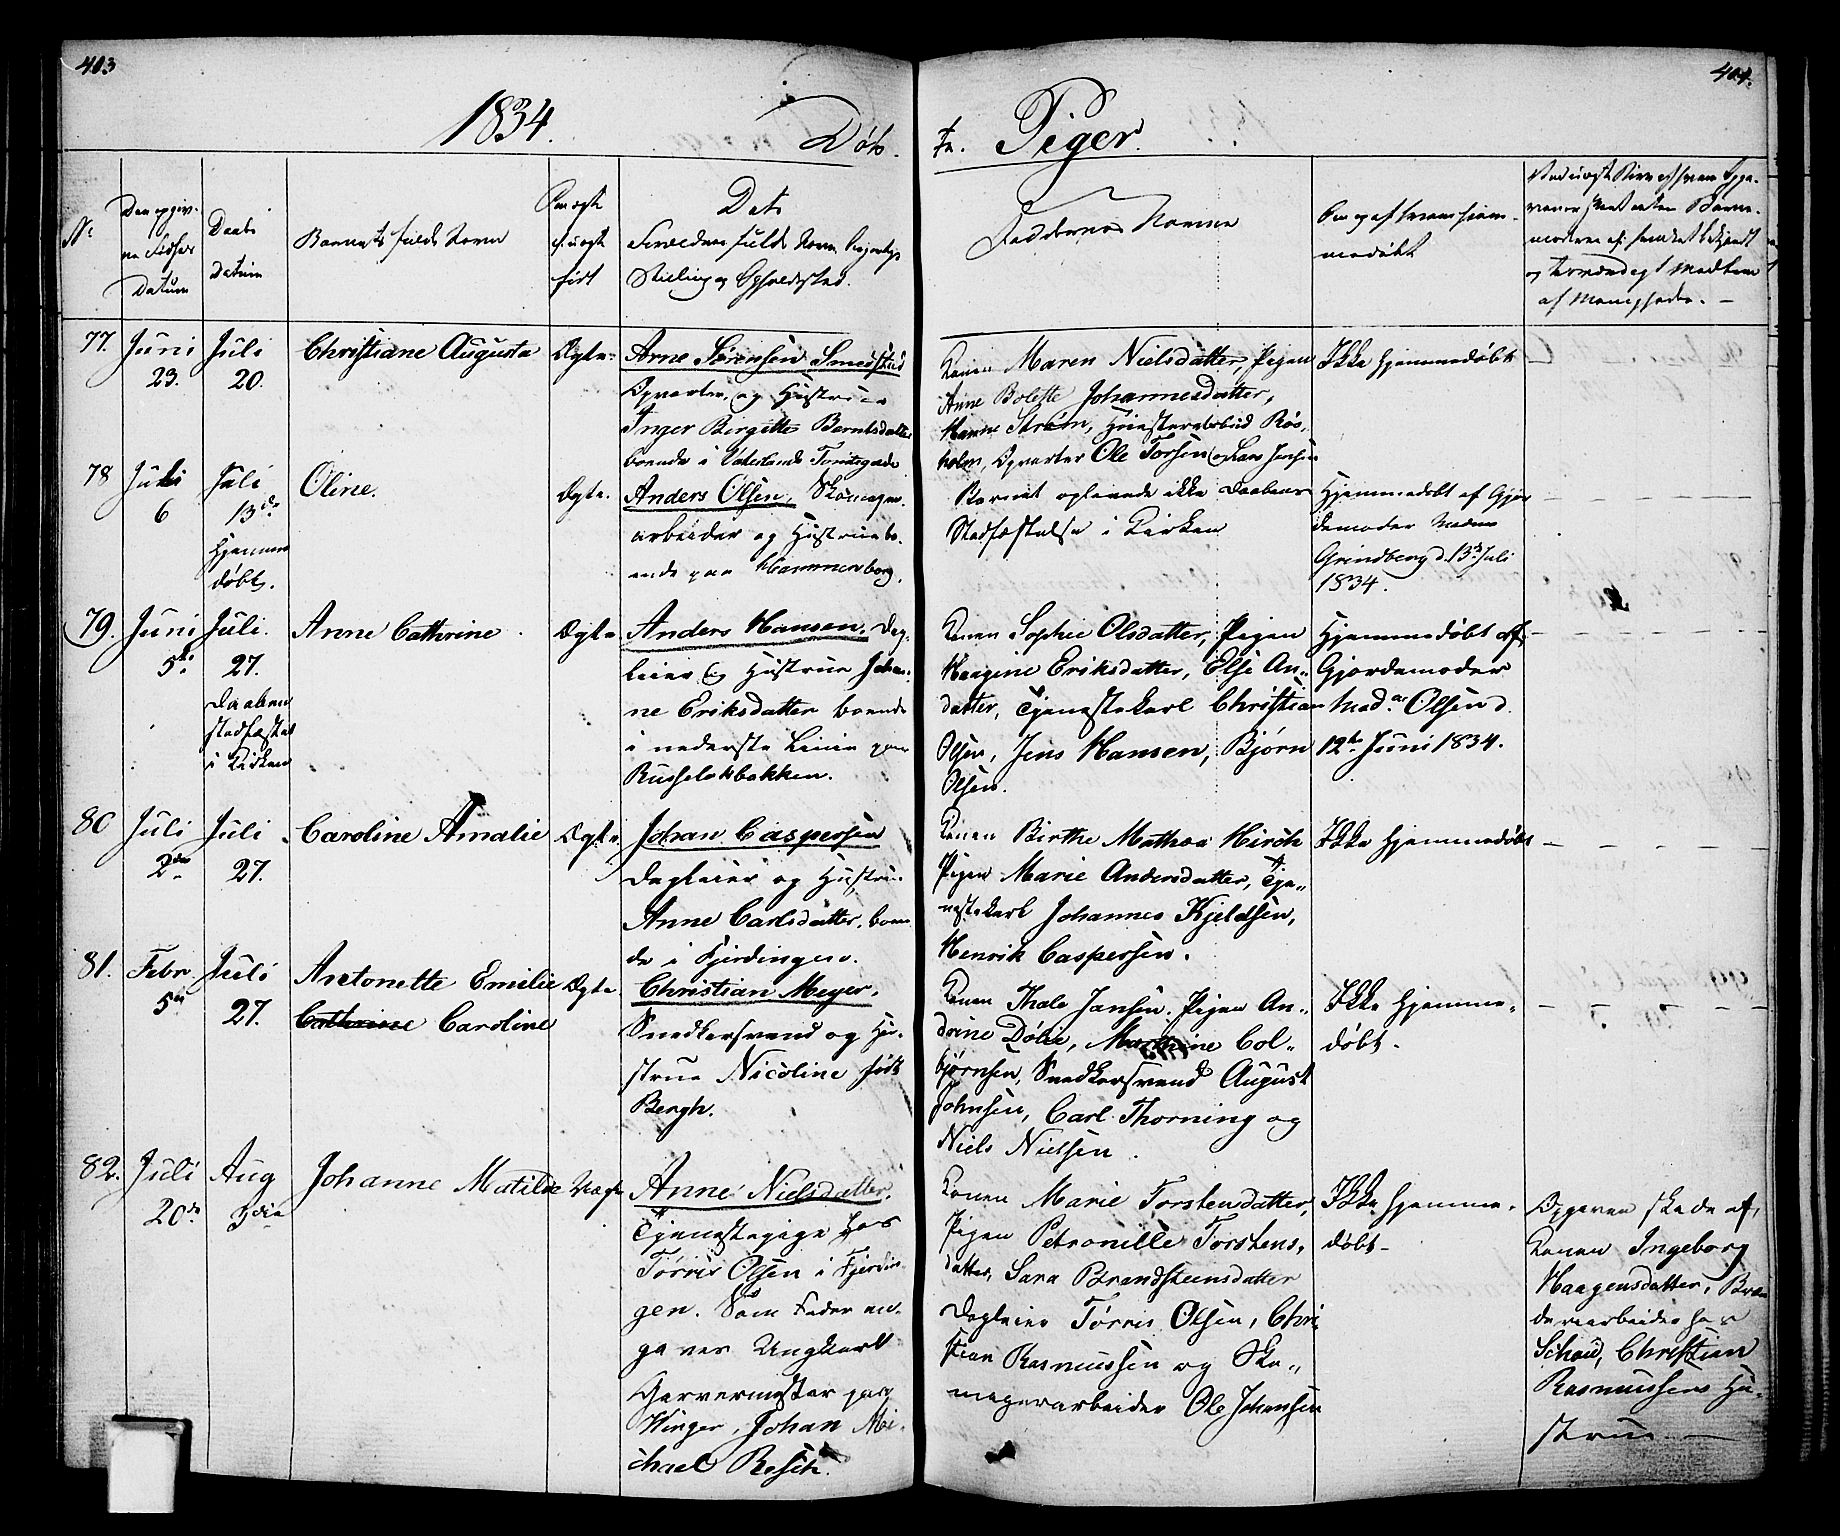 403
404.
1834.
Døb.
te. Piger.
No
Den opgiv-
ne Fødsels
Datum
Daabs
Datum
Barnets fulde Navn
Om ægte
el. uægte
født
Dets
Forældres fulde Navn, Borgerlige
Stilling og Opholdssted.
Faddernes Navne
Om og af hvem hjem-
medøbt
77.
Juni
23.
Juli
20.
Christiane Augusta
Ægte
Arne Sørensen Smedstud
Opvarter, og Hustrue
Inger Birgitte Berntsdatter
boende i Vaterlands Tomtegade
Konen Maren Nielsdatter, Pigen
Anne Bolette Johannesdatter,
Hanne Strøm, Hunstererarbeid Røs,
holm, Opvarter Ole Torsen og Lars Jensen
Ikke hjemmedøbt
78
Juli
6
Juli
13de
Hjemme
døbt.
Oline.
Ægte.
Anders Olsen, Skomager
arbeider og Hustrue bo-
ende paa Hammersborg.
Barnet oplevede ikke Daabens
Stadfæstelse i Kirken
Hjemmedøbt af Gjor
demoder Madme
Grindberg d. 13de Juli
1834.
79.
Juni
5te
Juli.
27.
Daaben
stadfæstet
i Kirken
Anne Cathrine
Ægte
Anders Hansen, Dag-
leier og Hustrue Johan-
ne Eriksdatter boende
i nederste Linie paa
Russeløkbakken.
Konen Sophie Olsdatter, Pigen
Haagine Eriksdatter, Else An-
datter, Tjenestekarl Christian
Olsen, Jens Hansen, Bjørn
Olsen.
Hjemmedøbt af
Gjordemoder
Mad. Olsen d.
12te Juni 1834.
80
Juli
2den
Juli
27.
Caroline Amalie
Ægte
Johan Caspersen
Dagleier og Hustrue
Anne Carlsdatter, boen
de i Fjerdingen.
Konen Birthe Mathea Hirsch
Pigen Marie Andersdatter, Tje-
nestekarl Johannes Kjeldsen,
Henrik Caspersen.
Ikke hjemmedøbt
81.
Febr.
5te
Juli
27.
Antonette Emilie
Cathrine Caroline
Ægte
Christian Meyer,
Snedkersvend og Hu-
strue Nicoline født
Bergh.
Konen Thale Jansen, Pigen An-
drine Dølie, Marthine Col-
bjørnsen, Snedkersvend August
Johnsen, Carl Thorning og
Niels Nielsen.
Ikke hjemme-
døbt.
82.
Juli
20de
Aug
3die
Johanne Matilde
Uægte
Anne Nielsdatter,
Tjenestepige hos
Tørris Olsen i Fjerdin
gen. Som Fader an-
gaves Ungkarl
Garvermester paa
Winger, Johan Mi-
chael Resch.
Konen Marie Torstensdatter,
Pigen Petronille Torstens,
datter, Sara Brandsteensdatter
Dagleier Tørris Olsen, Chri
stian Rasmussen og Sko-
magerarbeider Ole Johansen
Ikke hjemme-
døbt-
Opgaven skede af,
Konen Ingeborg
Haagensdatter, Bræn
deriarbeider hos
Schou, Christian
Rasmussens Hu-
strue.